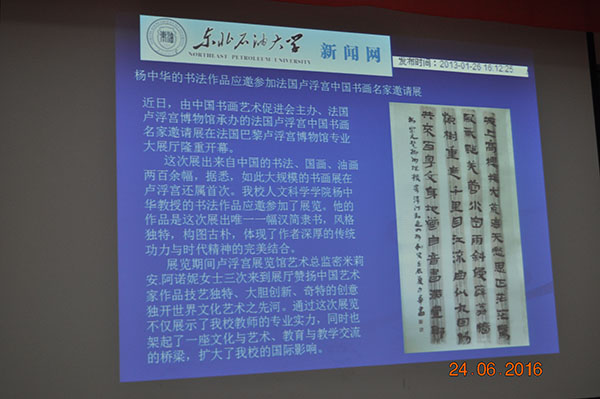 东北石油大学 新闻网
NORTHEAST PETROLEUM UNIVERSITY
发布时间：2013-01-26 15:12:25
杨中华的书法作品应邀参加法国卢浮宫中国书画名家邀请展
近日，由中国书画艺术促进会主办、法国
卢浮宫博物馆承办的法国卢浮宫中国书画
名家邀请展在法国巴黎卢浮宫博物馆专业
大展厅隆重开幕。
这次展出来自中国的书法、国画、油画
两百余幅，据悉，如此大规模的书画展在
卢浮宫还属首次。我校人文科学学院杨中
华教授的书法作品应邀参加了展览。他的
作品是这次展出唯一一幅汉简隶书，风格
独特，构图古朴，体现了作者深厚的传统
功力与时代精神的完美结合。
展览期间卢浮宫展览馆艺术总监密米莉
安.阿诺妮女士三次来到展厅赞扬中国艺术
家作品技艺独特、大胆创新、奇特的创意
独开世界文化艺术之先河。通过这次展览
不仅展示了我校教师的专业实力，同时也
架起了一座文化与艺术、教育与教学交流
的桥梁，扩大了我校的国际影响。
城上高樓接大荒海天愁思正茫茫
芙蓉水密雨斜侵薜荔
嶺樹重遮千里目江流曲似九回腸
共來百粵文身地猶自音書滯一鄉
24 06 2016